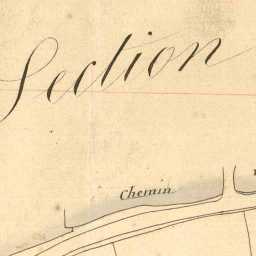 Section
Chemin